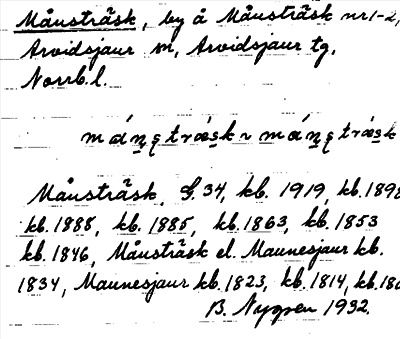 Månsträsk, by å Månsträsk nr 1-2,
Arvidsjaur sn, Arvidsjaur tg,
Norrb. l.
Månsträsk, G. 34, kb. 1919, kb. 1898
kb. 1888, kb. 1885, kb. 1863, kb. 1853
kb. 1846, Månsträsk el. Maunesjaur kb.
1834, Maunesjaur kb. 1823, kb. 1814, kb. 180
B. Nygren 1932.